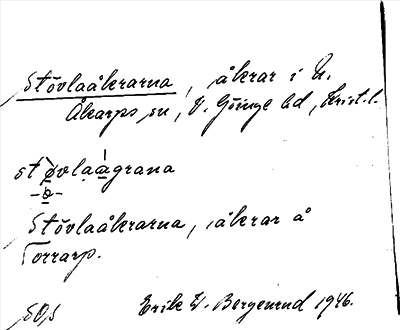 Stövlaåkrarna, åkrar i N.
Åkarps sn, V. Göinge hd, Krist. l.
støvlaågrana
-ø-
Stövlaåkrarna, åkrar å
Torrarp.
SOs Erik W. Bergenrud 1946.